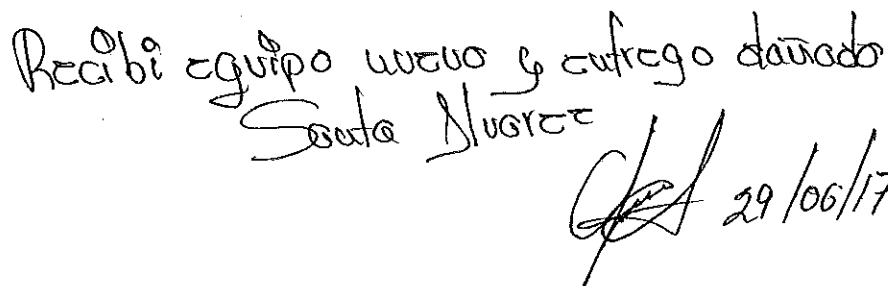 Recibi equipo nuevo y entrego dañado
Santa Alvarez
29/06/17